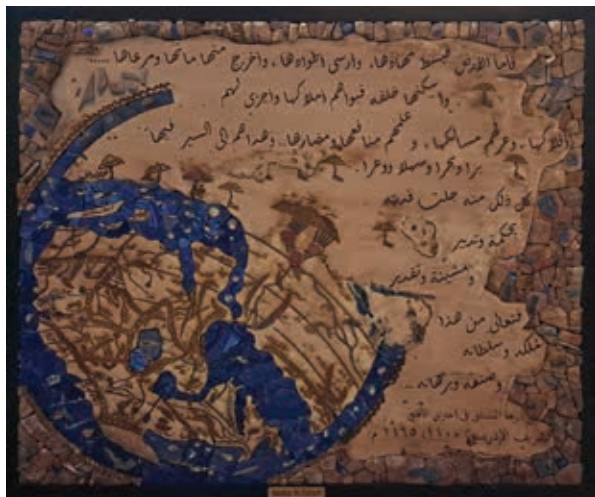 فأما الأرض فبسط مهادها، وأرسى أطوادها، وأخرج منها ماءها ومرعاها .....
وأسكنها خلقه فبوأهم أملاكها وأجرى لهم
أفلاكها، وعرفهم مسالكها، و علمهم منافعها ومضارها، وهداهم إلى السير فيها
برا وبحرا وسهلا ووعرا.
كل ذلك منه جلت قدرته
بحكمة وتدبير
ومشيئة وتقدير
فتعالى من هذا
ملكه وسلطانه
وصنعه وبرهانه ..
المشتاق في اختراق الآفاق
الشريف الإدريسي